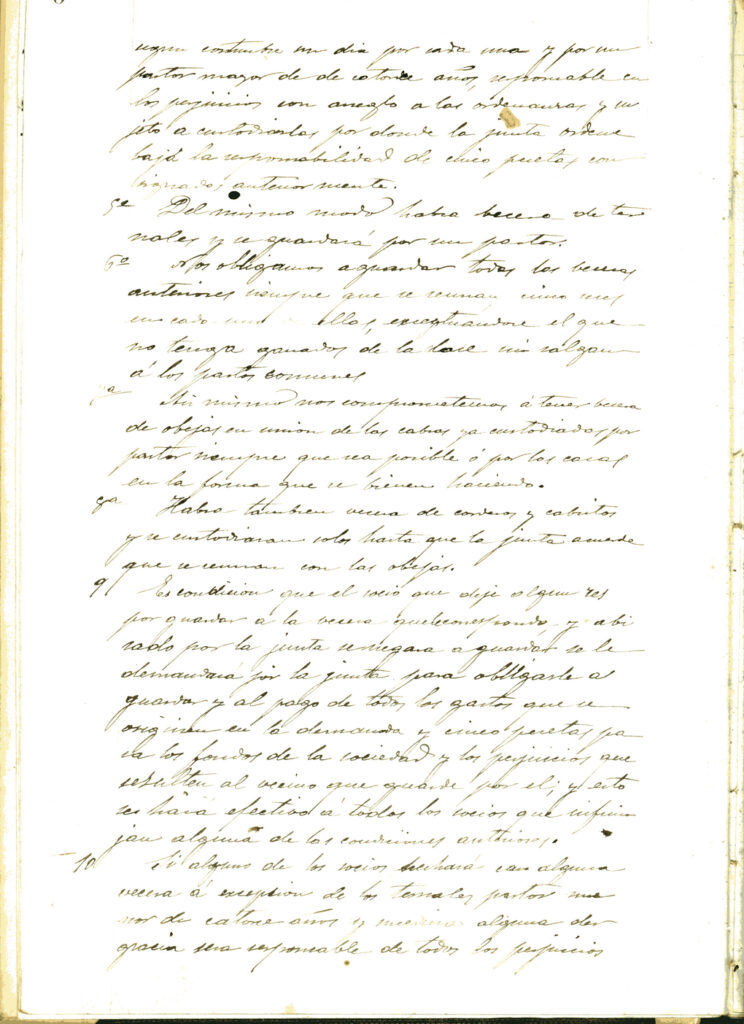 segun costumbre un dia por cada una y por un
pastor mayor de de catorce años, responsable en
los perjuicios con arreglo a las ordenanzas y su
jeto a custodiarlas por donde la junta ordene
bajo la responsabilidad de cinco pesetas con
signados anteriormente.
5ª Del mismo modo habra becera de ter
nales y se guardará por un pastor.
6ª Nos obligamos a guardar todas las beceras
anteriores siempre que se reunan cinco reses
en cada una de ellas, exceptuandose el que
no tenga ganados de la clase ni salgan
á los pastos comunes
7ª Asi mismo nos comprometemos á tener becera
de obejas en union de las cabras ya custodiadas por
pastor siempre que sea posible ó por las casas
en la forma que se bienen haciendo.
8ª Habra tambien vecera de corderos y cabritos
y se custodiaran solos hasta que la junta acuerde
que se reunan con las obejas.
9 Es condicion que el socio que deje algun res
por guardar á la vecera que le corresponda y abi
sado por la junta se negara a guardar se le
demandará por la junta para obligarle a
guardar y al pago de todos los gastos que se
originen en la demanda y cinco pesetas pa
ra los fondos de la sociedad y los perjuicios que
resulten al vecino que guarde por el; y esto
se hará efectivo á todos los socios que infrin
jan alguna de las condiciones anteriores.
10 Si alguno de los socios hechará con alguna
vecera á excepsion de los ternales pastor me
nor de catorce años y alguna des
gracia sera responsable de todos los perjuicios